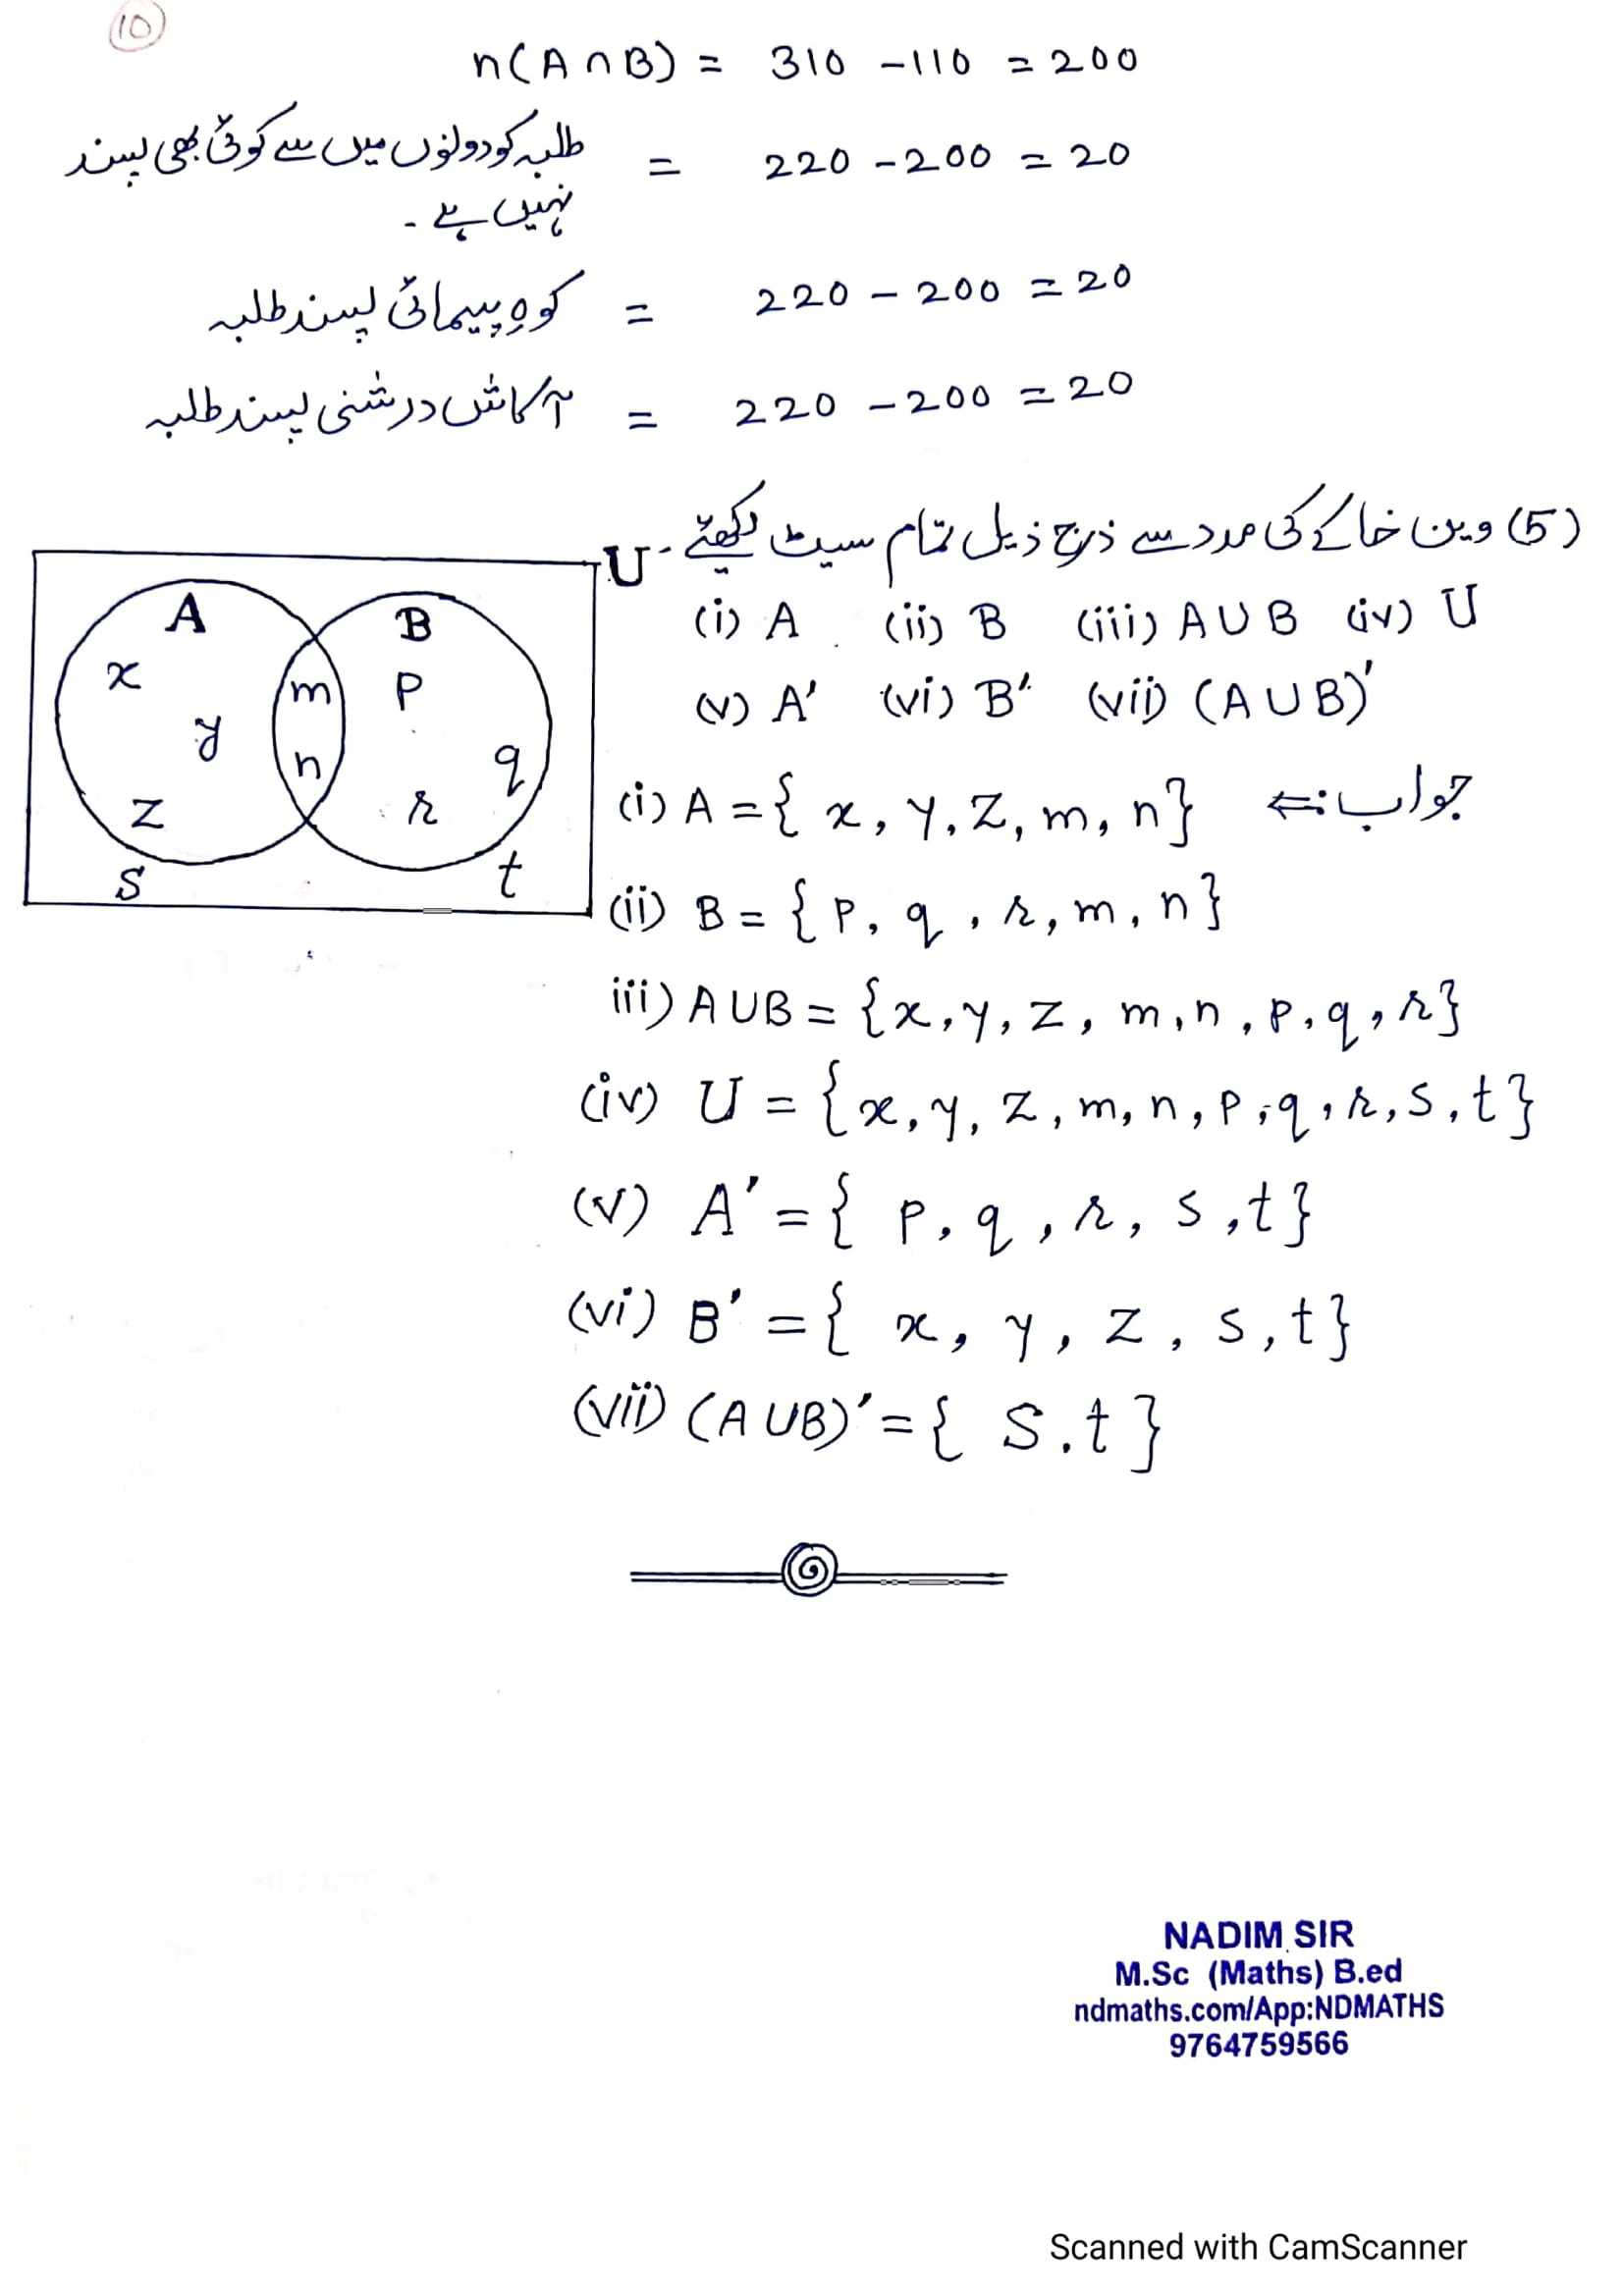 10
n(A ∩ B) = 310 - 110 = 200
طلبہ کو دونوں میں سے کوئی بھی پسند = 220 - 200 = 20
نہیں ہے۔
کوہ پیمائی پسند طلبہ = 220 - 200 = 20
آکاش درشنی پسند طلبہ = 220 - 200 = 20
(5) وین خاکے کی مدد سے ذرج ذیل تمام سیٹ لکھئے۔
U
(i) A (ii) B (iii) A U B (iv) U
(v) A' (vi) B' (vii) (A U B)'
A B
x m p
y n q
z r
s t
جواب:⇐ (i) A = { x, y, z, m, n}
(ii) B = { p, q, r, m, n}
iii) A U B = {x, y, z, m, n, p, q, r}
(iv) U = {x, y, z, m, n, p, q, r, s, t}
(v) A' = { p, q, r, s, t}
(vi) B' = { x, y, z, s, t}
(vii) (A U B)' = { s. t }
NADIM SIR
M.Sc (Maths) B.ed
ndmaths.com/App:NDMATHS
9764759566
Scanned with CamScanner